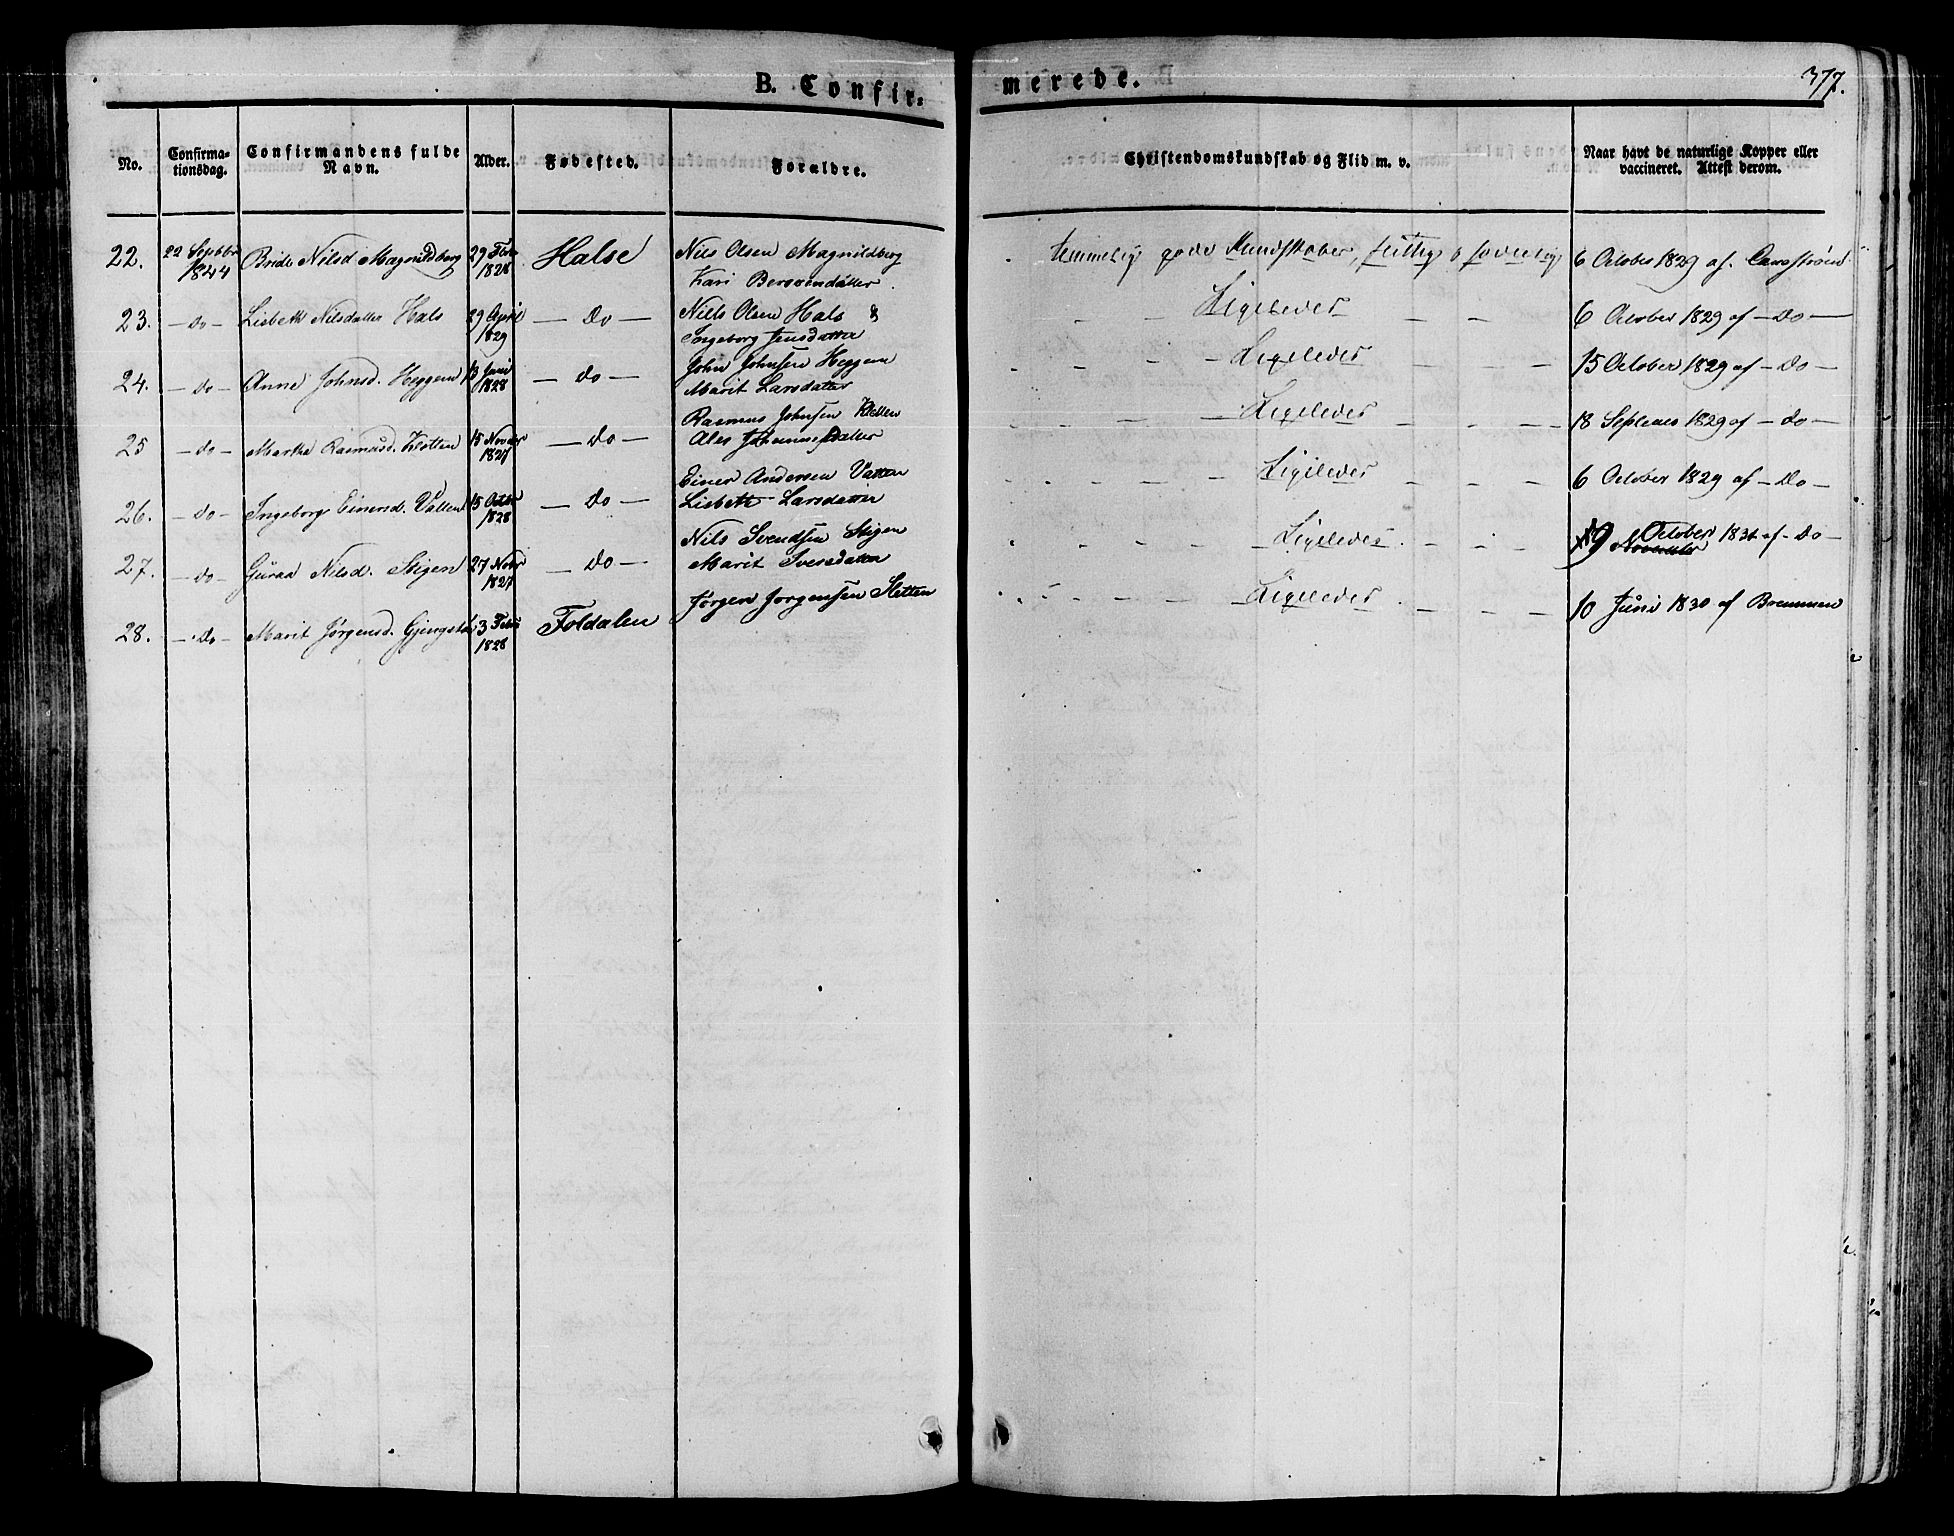 B. Confir-
merede.
377.
No.
Confirma-
tionsdag.
Confirmandens fulde
Navn.
Alder.
Fødested.
Foraldre.
Christendomskundskab og Flid m. v.
Naar havt de naturlige Kopper eller
vaccineret. Attest derom.
22. 22 Septbr 1844 Nilsd Magnildberg 29 1828 Halse Nils Olsen Magnildberg
Kari
temmelig gode Kundskaber, flittig & sædelig 6 October 1829 af
23. — Do — Lisbeth Nilsdatter Hals 29 April 1829 — Do — Niels Olsen Hals &
Ingeborg Jensdatter
Ligeledes 6 October 1829 af — Do —
24. — Do — Anne Johnsd. Heggem 13 Juni 1828 — Do — John Johnsen Heggem
Marit Larsdatter
Ligeledes 15 October 1829 af — Do —
25 — Do — Martha Rasmusd. Kletten 15 Novbr 1827 — Do — Rasmus Johnsen Kletten
Ligeledes 18 1829 af — Do —
26. — Do — Ingeborg Einersd. Vatten 15 Octbr 1828 — Do — Einer Andersen Vatten
Lisbeth Larsdatter
Ligeledes 6 October 1829 af — Do —
27. — Do — Guraa Nilsd. Stigen 27 Novbr 1827 — Do — Nils Svendsen Stigen
Marit
Ligeledes 19 October af — Do —
28. — Do — Marit Jørgensd. 3 Febr 1828 Foldalen Jørgen Jørgensen Sletten
Ligeledes 10 Juni 1830 af